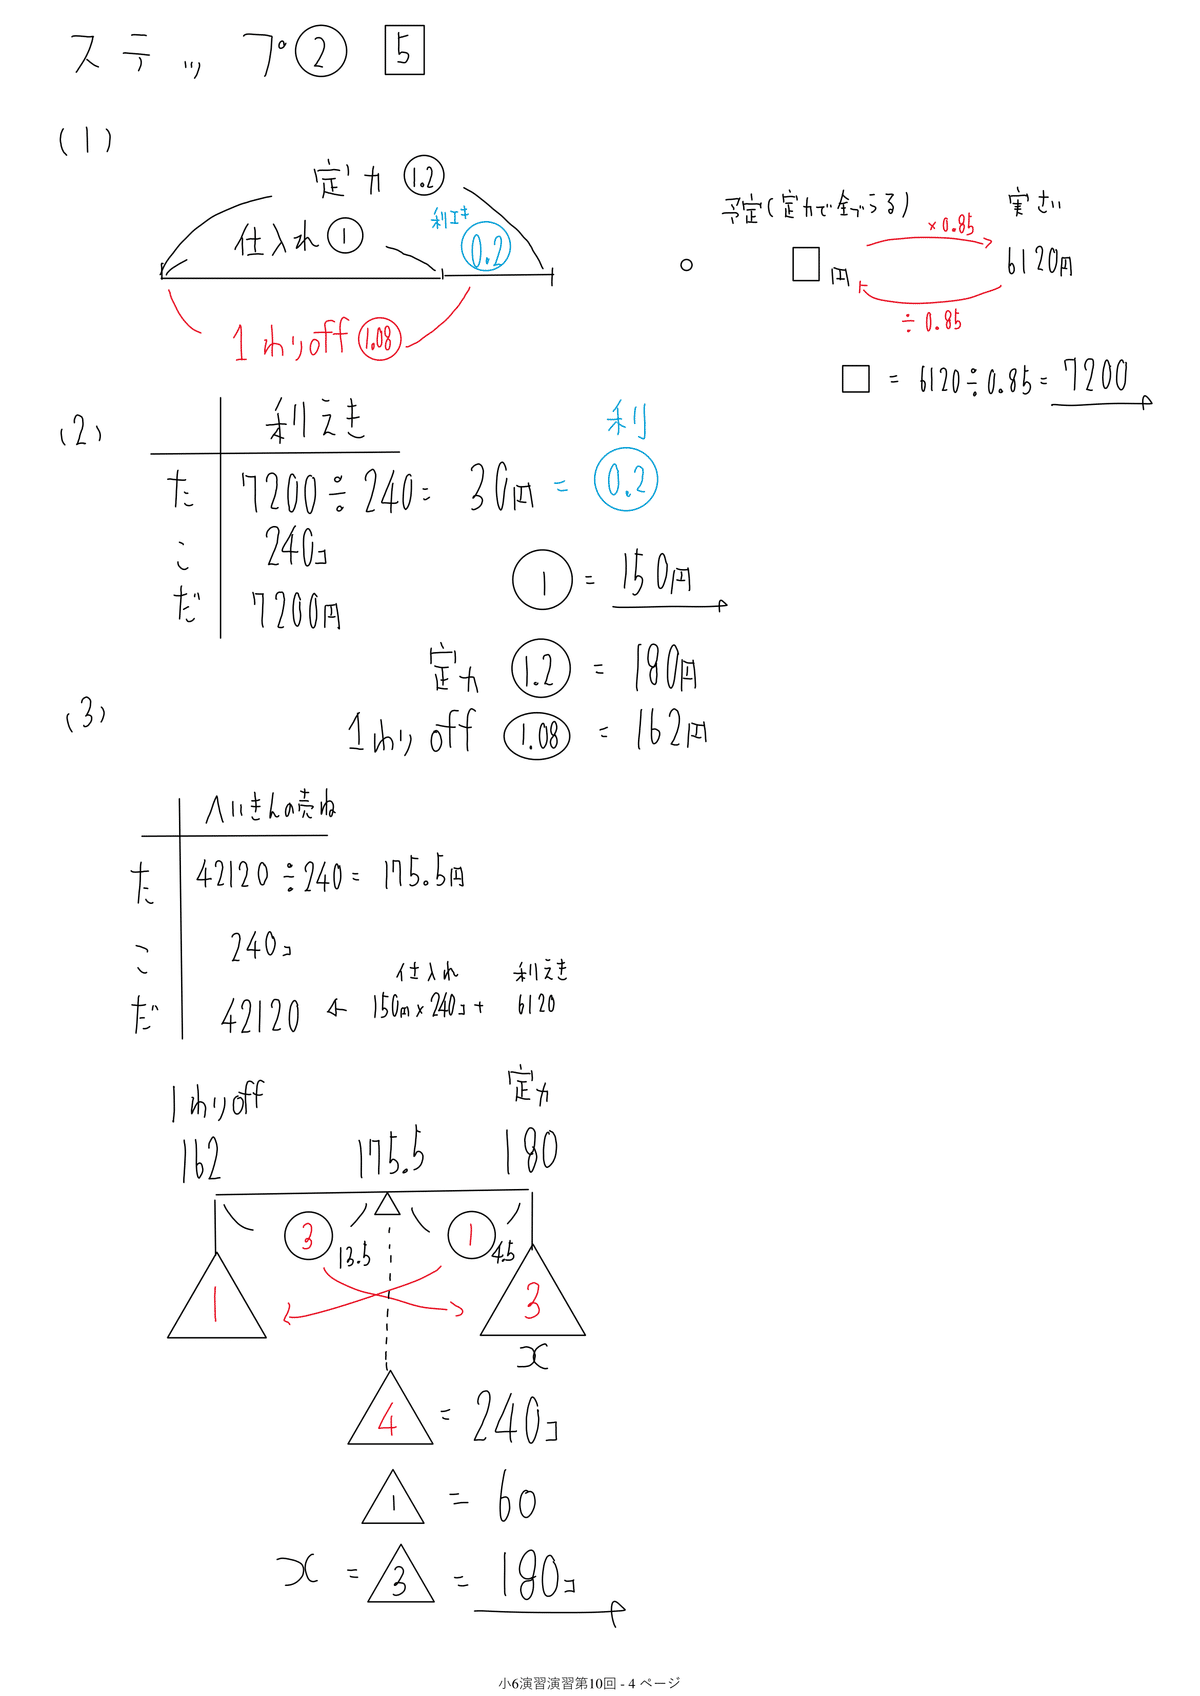 ステップ② 5
(1)
定カ 1.2
仕入れ ① 利エキ 0.2
1わりoff 1.08
予定(定カで全ブうる) 実さい
×0.85
□円 6120円
÷0.85
□ = 6120÷0.85= 7200
(2)
利えき
た 7200÷240= 30円 = 0.2 利
こ 240コ
だ 7200円
① = 150円
定カ 1.2 = 180円
1わり off 1.08 = 162円
(3)
へいきんの売ね
た 42120÷240= 175.5円
こ 240コ
仕入れ 利えき
だ 42120 ← 150円×240コ+ 6120
1わりoff 定カ
162 175.5 180
③ 13.5 ① 4.5
1 3
x
4 = 240コ
1 = 60
x = 3 = 180コ
小6演習演習第10回 - 4 ページ